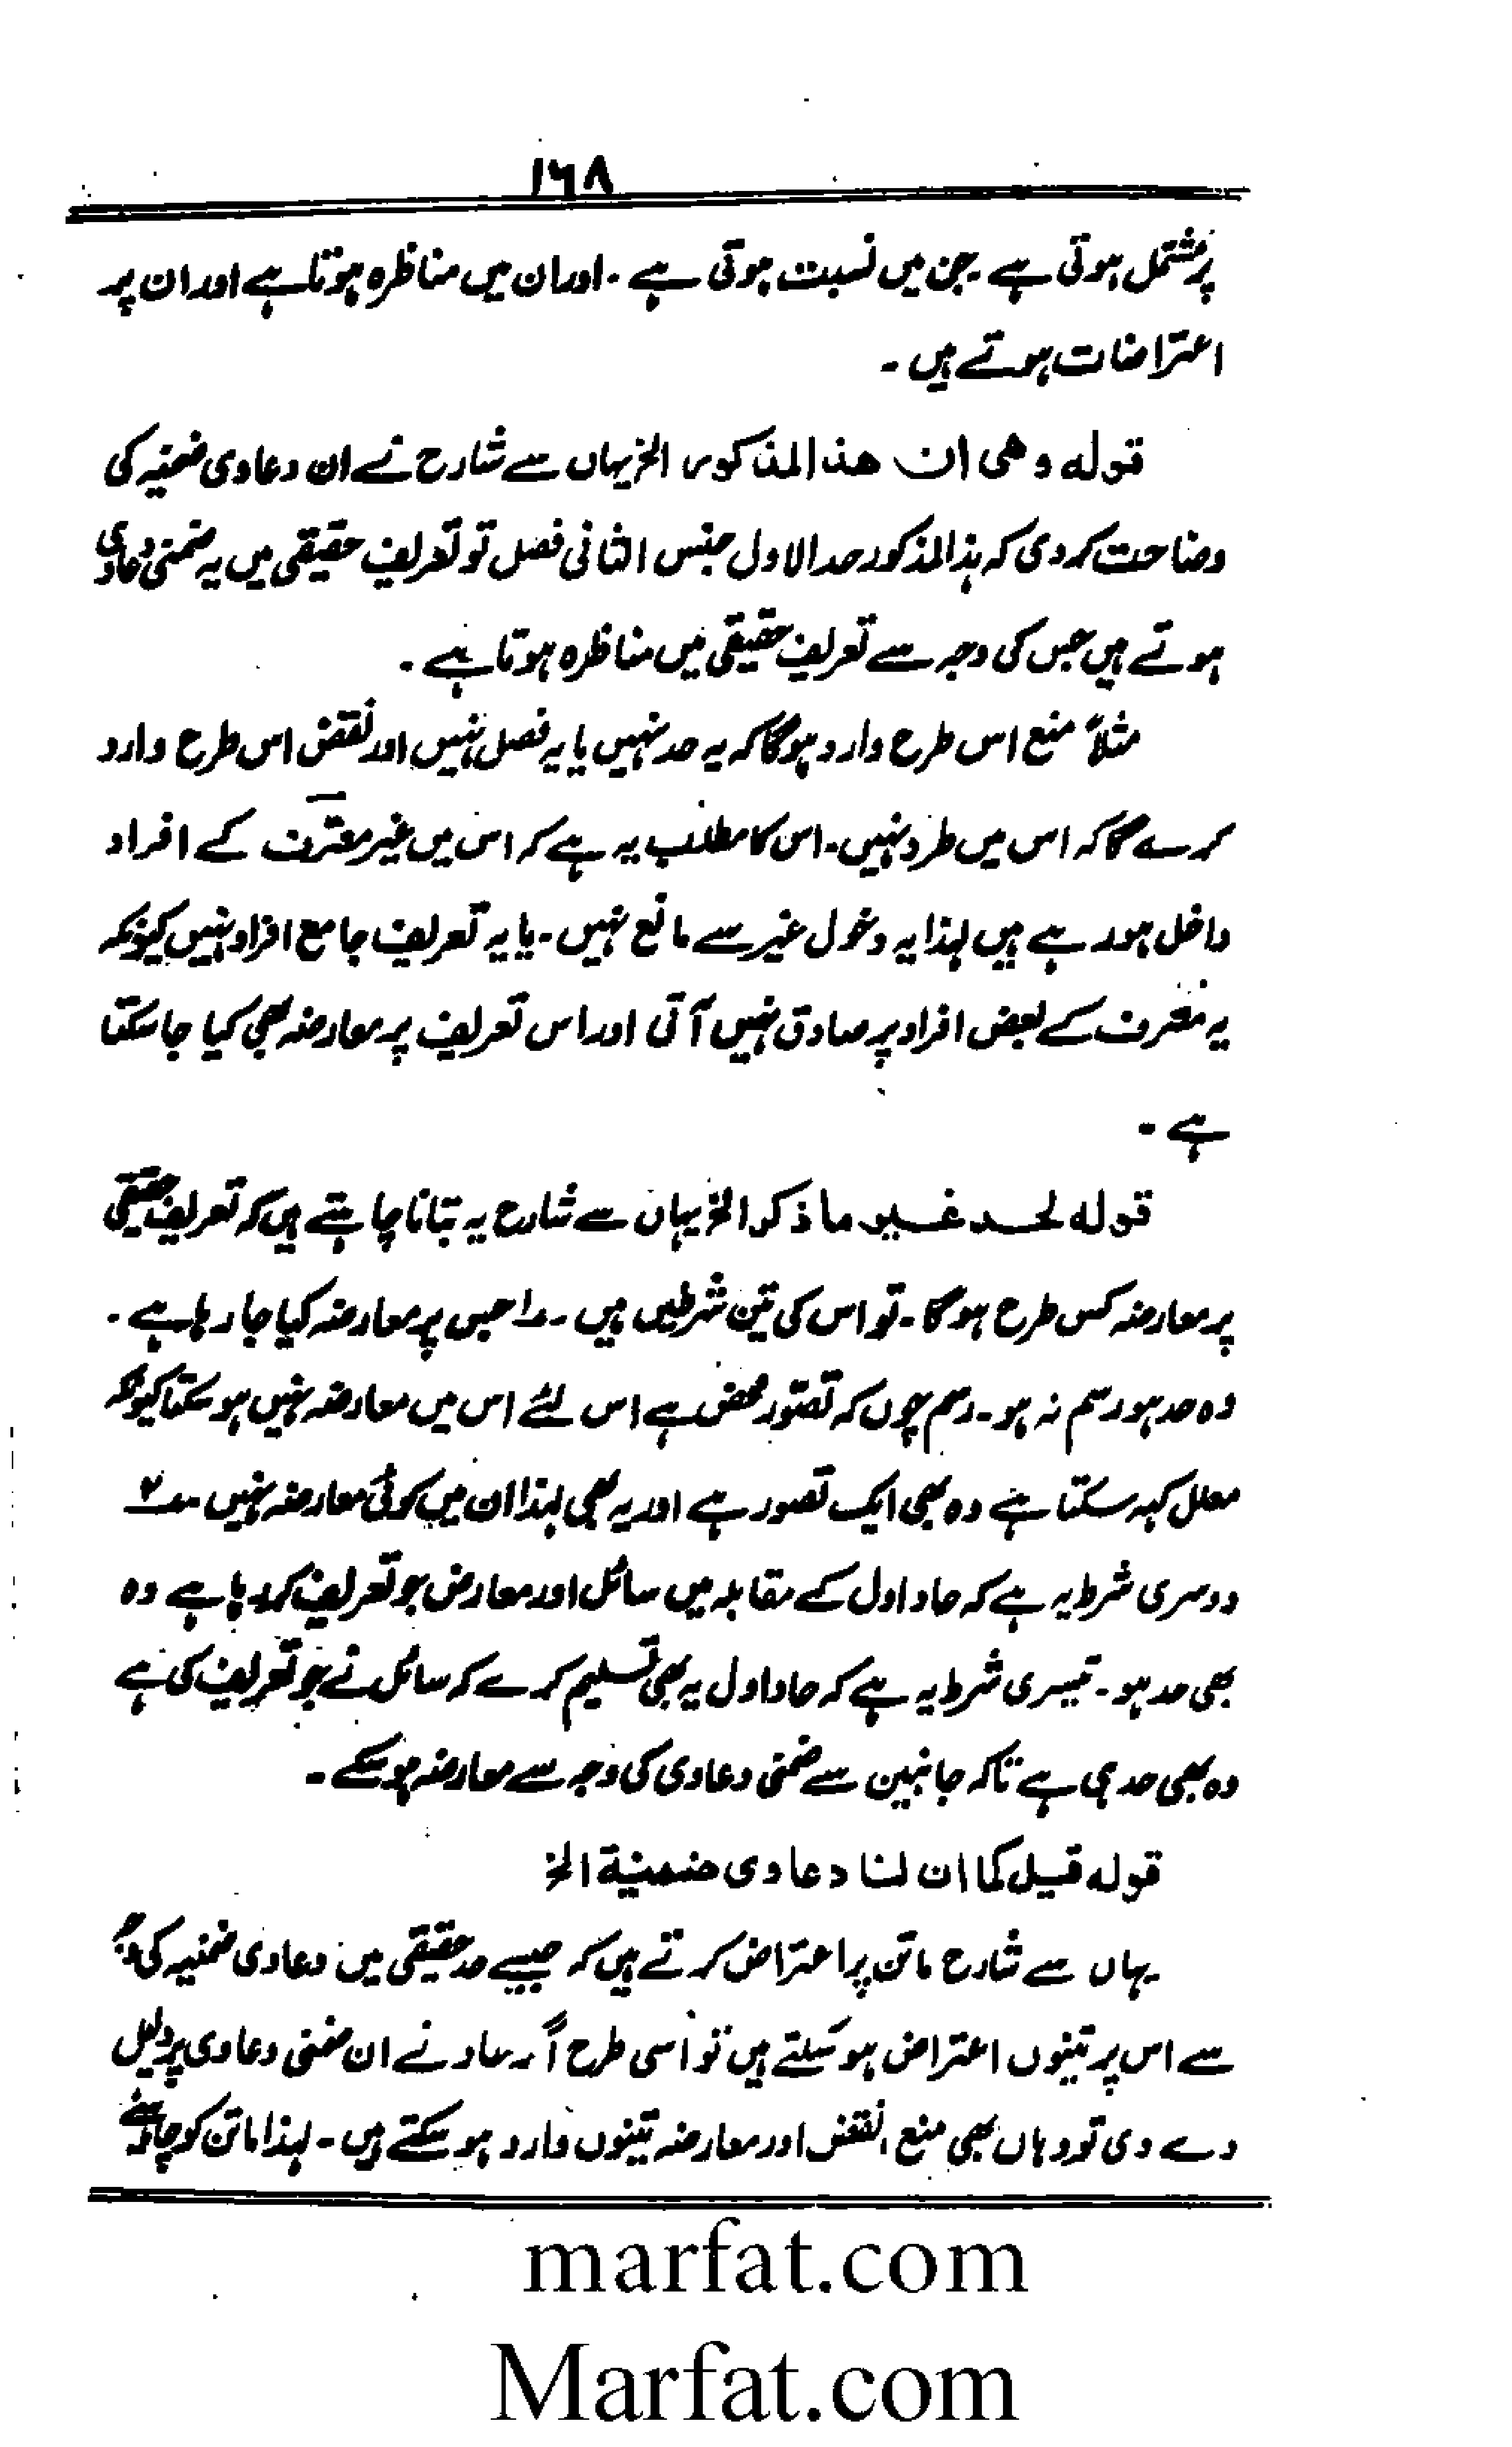 ١٦٨
پر مشتمل ہوتی ہے۔ جن میں نسبت ہوتی ہے۔ اور ان میں مناظرہ ہوتا ہے اور ان پر
اعتراضات ہوتے ہیں۔
قوله وهى ان هذا المذكور الخ یہاں سے شارح نے ان دعاوی ضمنیہ کی
وضاحت کر دی کہ ہذا المذکور حد الاول جنس الثانی فصل تو تعریف حقیقی میں یہ ضمنی دعاوی
ہوتے ہیں جس کی وجہ سے تعریف حقیقی میں مناظرہ ہوتا ہے۔
مثلاً منع اس طرح وارد ہوگا کہ یہ حد نہیں یا یہ فصل نہیں اور نقض اس طرح وارد
کرے گا کہ اس میں طرد نہیں۔ اس کا مطلب یہ ہے کہ اس میں غیر معرَّف کے افراد
داخل ہو رہے ہیں لہذا یہ دخول غیر سے مانع نہیں۔ یا یہ تعریف جامع افراد نہیں کیونکہ
یہ معرف کے بعض افراد پر صادق نہیں آتی اور اس تعریف پر معارضہ بھی کیا جا سکتا
ہے۔
قوله لحد غير ما ذكر الخ یہاں سے شارح یہ بتانا چاہتے ہیں کہ تعریف حقیقی
پر معارضہ کس طرح ہوگا۔ تو اس کی تین شرطیں ہیں۔ ۱؎ جس پر معارضہ کیا جا رہا ہے۔
وہ حد ہو رسم نہ ہو۔ رسم چوں کہ تصوّر محض ہے اس لئے اس میں معارضہ نہیں ہو سکتا کیونکہ
معلل کہہ سکتا ہے وہ بھی ایک تصور ہے اور یہ بھی لہذا ان میں کوئی معارضہ نہیں ۔ ۲؎
دوسری شرط یہ ہے کہ حاد اول کے مقابلہ میں سائل اور معارض جو تعریف کر رہا ہے وہ
بھی حد ہو۔ تیسری شرط یہ ہے کہ حاد اول یہ بھی تسلیم کرے کہ سائل نے جو تعریف کی ہے
وہ بھی حد ہی ہے تاکہ جانبین سے ضمنی دعاوی کی وجہ سے معارضہ ہو سکے۔
قوله قيل كما ان لنا دعاوى ضمنية الخ
یہاں سے شارح ماتن پر اعتراض کرتے ہیں کہ جیسے حد حقیقی میں دعاوی ضمنیہ کی وجہ
سے اس پر تینوں اعتراض ہو سکتے ہیں تو اسی طرح اگر حاد نے ان ضمنی دعاوی پر دلیل
دے دی تو وہاں بھی منع، نقض اور معارضہ تینوں وارد ہو سکتے ہیں۔ لہذا ماتن کو چاہئے
marfat.com
Marfat.com